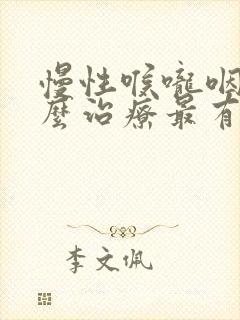 慢性喉嚨咽
麼治療最有
李文佩